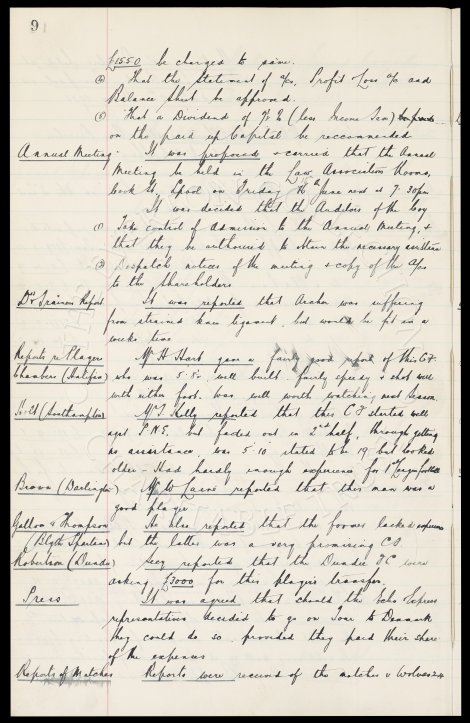 9
£1550 be charged to same.
(4) That the Statement of a/cs, Profit & Loss a/c and
Balance Sheet be approved.
(5) That a Dividend of 7½% (less Income Tax)
on the paid up Capital be reccommended
Annual Meeting. It was proposed & carried that the Annual
Meeting be held in the Law Association Rooms,
Cook St, Lpool on Friday 16th June next at 7.30pm
It was decided that the Auditors of the Coy
(1) Take control of Admission to the Annual Meeting, &
that they be authorised to obtain the necessary assistance
(2) Despatch notices of the meeting & copy of the a/cs
to the Shareholders
Drs & Trainers Report It was reported that Archer was suffering
from strained knee ligament, but would be fit in a
weeks time
Reports re Players Mr H Hart gave a fairly good report of this C.F.
Chambers (Halifax) who was 5.8½ well built fairly speedy & shot well
with either foot. Was well worth watching next season.
Holt (Southampton) Mr T Kelly reported that this C F started well
agst P.N.E. but faded out in 2nd half, through getting
no assistance, was 5.10 stated to be 19 but looked
older - Had hardly enough experience for 1st League football
Brown (Darlington) Mr W reported that this man was a
good player
Gallon & Thompson He also reported that the former lacked experience
(Blyth Spartans) but the latter was a very promising CF.
Robertson (Dundee) Secy reported that the Dundee FC were
asking £3000 for this players transfer.
Press It was agreed that should the Echo & Express
representatives decided to go on Tour to Denmark
they could do so provided they paid their share
of the expenses
Reports of Matches Reports were received of the matches v Wolves 2-4